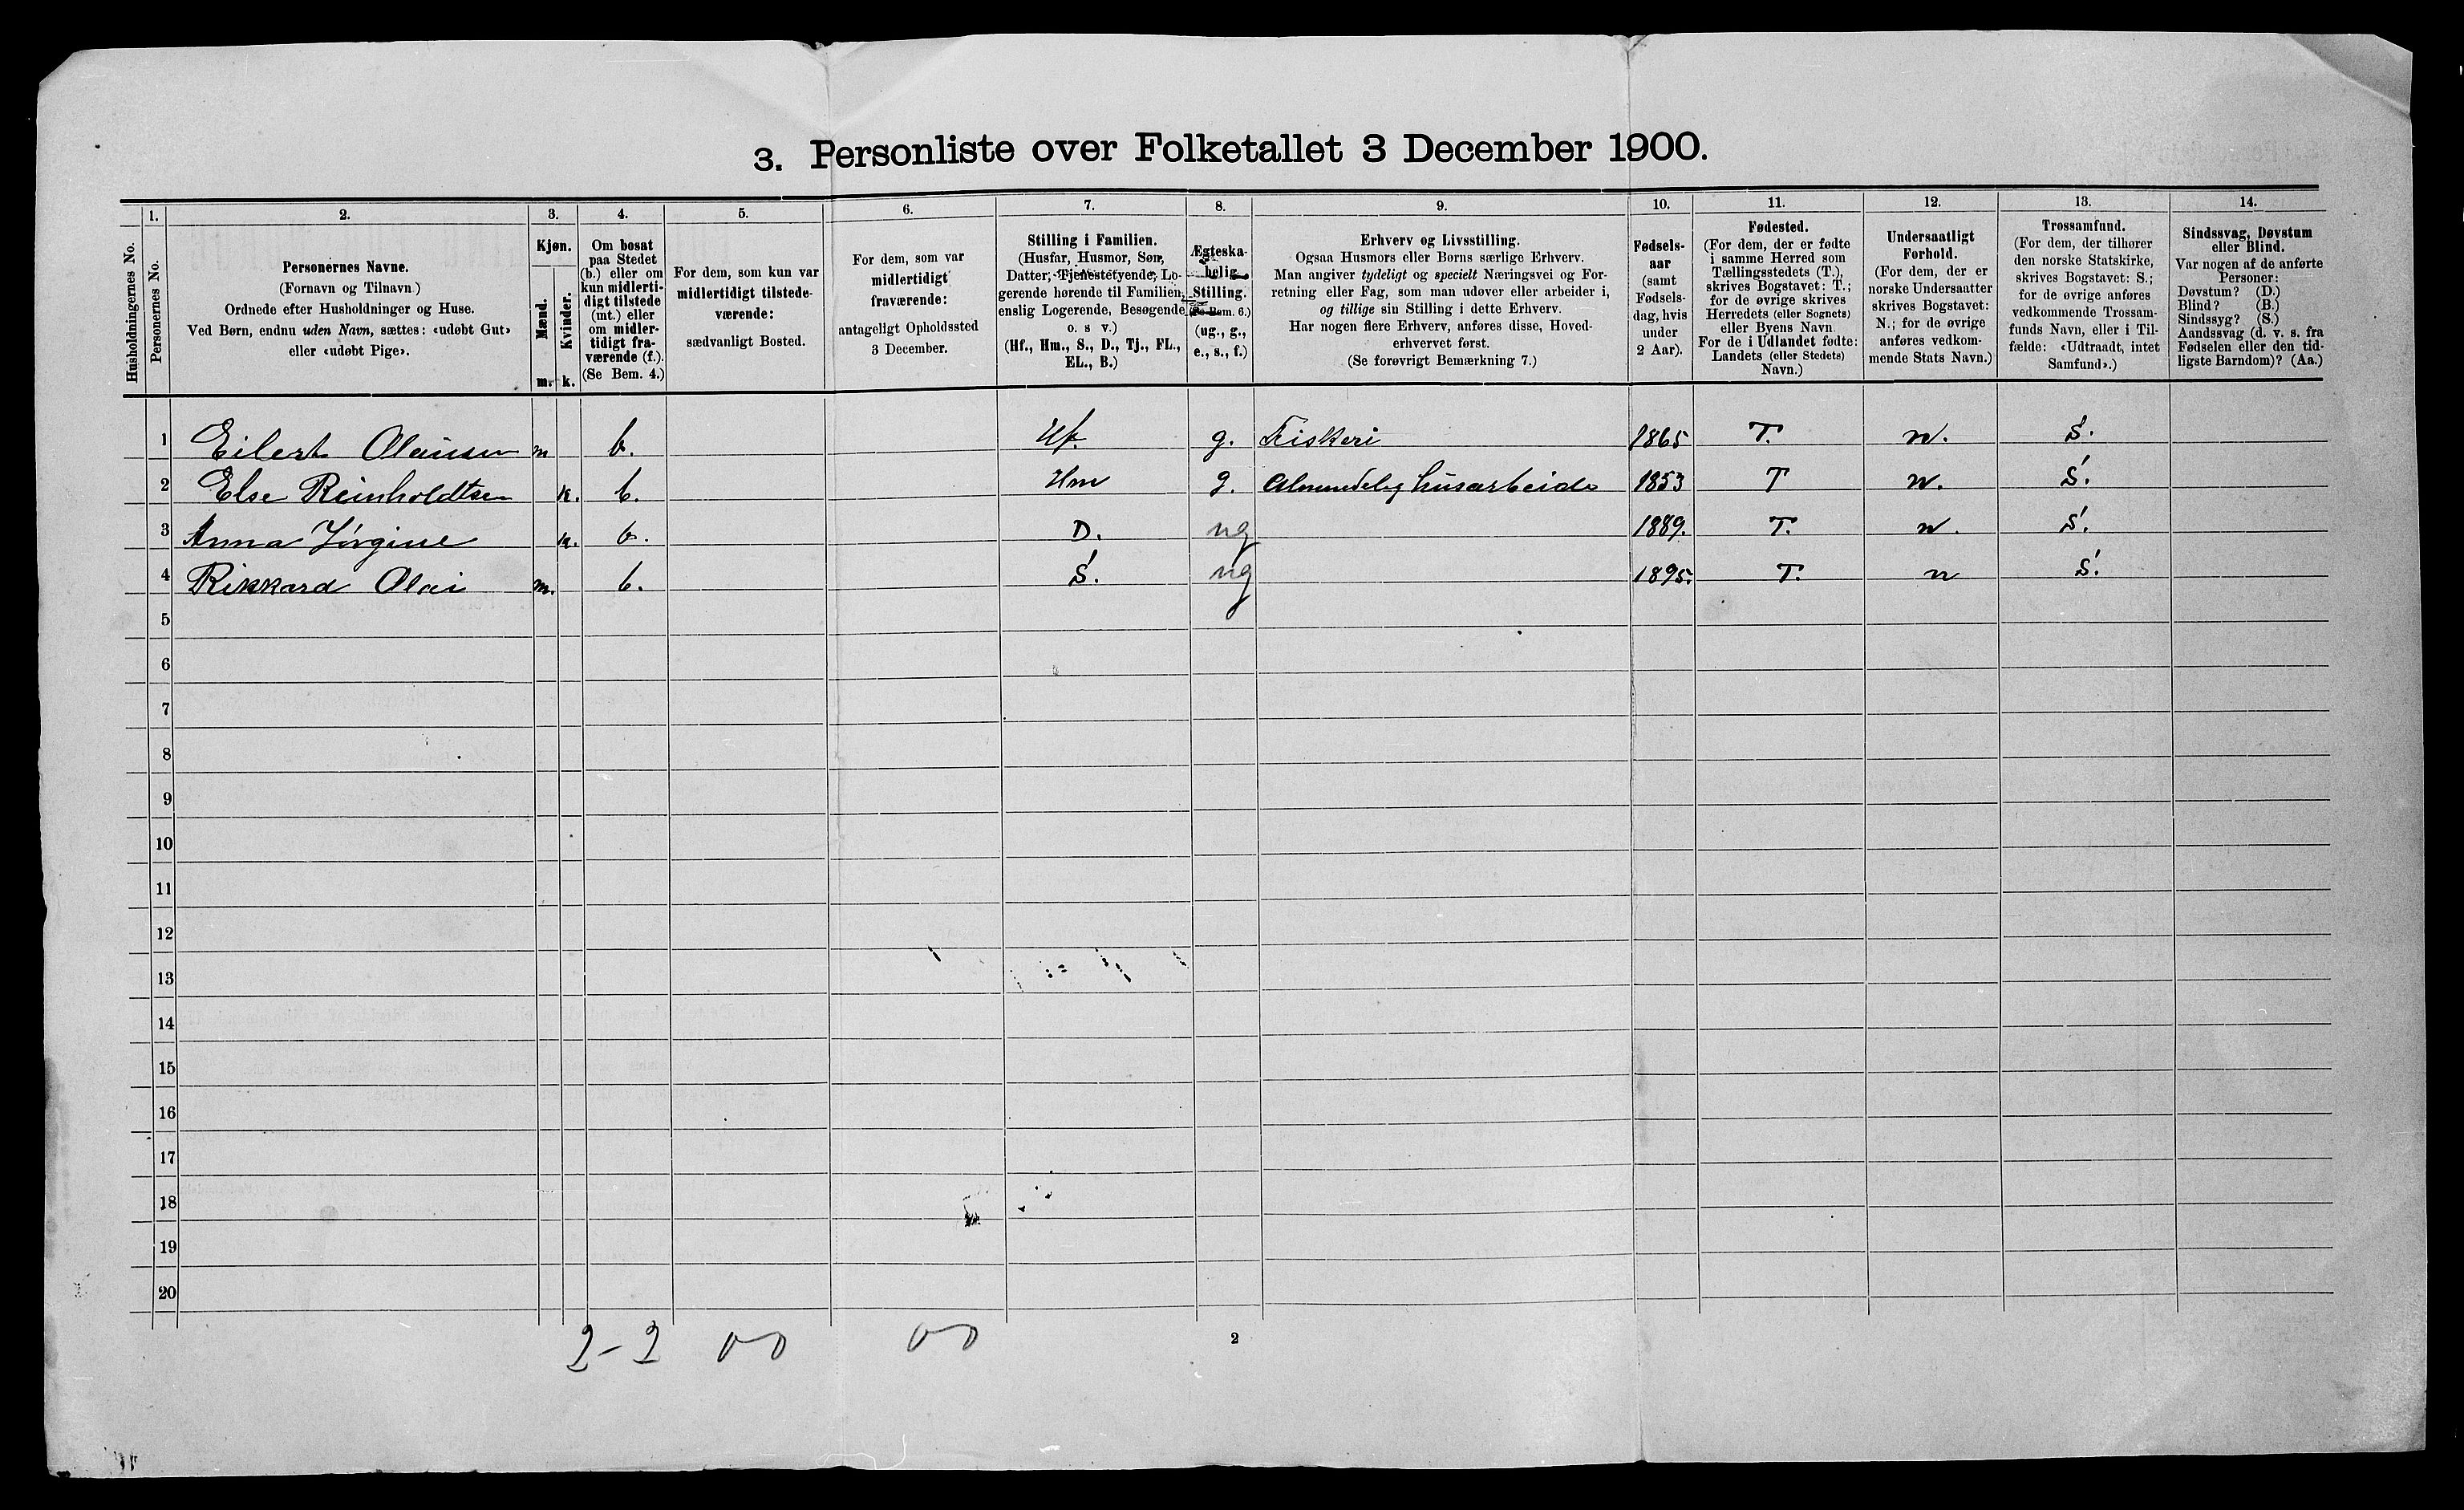 3. Personliste over Folketallet 3 December 1900.
Husholdningernes No.
1.
Personernes No.
2.
Personernes Navne.
(Fornavn og Tilnavn.)
Ordnede efter Husholdninger og Huse.
Ved Børn, endnu uden Navn, sættes: «udøbt Gut»
eller «udøbt Pige».
3.
Kjøn.
Mænd.
m.
Kvinder.
k.
4.
Om bosat
paa Stedet
(b.) eller om
kun midlerti-
digt tilstede
(mt.) eller
om midler-
tidigt fra-
værende (f.).
(Se Bem. 4.)
5.
For dem, som kun var
midlertidigt tilstede-
værende:
sædvanligt Bosted.
6.
For dem, som var
midlertidigt
fraværende:
antageligt Opholdssted
3 December.
7.
Stilling i Familien.
(Husfar, Husmor, Søn,
Datter, Tjenestetyende, Lo-
gerende hørende til Familien,
enslig Logerende, Besøgende
o. s v.)
(Hf., Hm., S., D., Tj., FL.,
EL., B.)
8.
Ægteska-
belig
Stilling.
(Se Bem. 6.)
(ug., g.,
e., s., f.)
9.
Erhverv og Livsstilling.
Ogsaa Husmors eller Børns særlige Erhverv.
Man angiver tydeligt og specielt Næringsvei og For-
retning eller Fag, som man udøver eller arbeider i,
og tillige sin Stilling i dette Erhverv.
Har nogen flere Erhverv, anføres disse, Hoved-
erhvervet først.
(Se forøvrigt Bemærkning 7.)
10.
Fødsels-
aar
(samt
Fødsels-
dag, hvis
under
2 Aar).
11.
Fødested.
(For dem, der er fødte
i samme Herred som
Tællingsstedets (T.),
skrives Bogstavet: T.;
for de øvrige skrives
Herredets (eller Sognets)
eller Byens Navn.
For de i Udlandet fødte:
Landets (eller Stedets)
Navn.)
12.
Undersaatligt
Forhold.
(For dem, der er
norske Undersaatter
skrives Bogstavet:
N.; for de øvrige
anføres vedkom-
mende Stats Navn.)
13.
Trossamfund.
(For dem, der tilhører
den norske Statskirke,
skrives Bogstavet: S.;
for de øvrige anføres
vedkommende Trossam-
funds Navn, eller i Til-
fælde: «Udtraadt, intet
Samfund».)
14.
Sindssvag, Døvstum
eller Blind.
Var nogen af de anførte
Personer:
Døvstum? (D.)
Blind? (B.)
Sindssyg? (S.)
Aandssvag (d. v. s. fra
Fødselen eller den tid-
ligste Barndom)? (Aa.)
1 Eilert Olausen m b. Hf. g. Fiskeri 1865 T. n. S.
2 Else Reinholdtsen k. b. Hm g. Almindelig husarbeide 1853 T n. S.
3 Anna Jørgine k. b. D. ug 1889. T. n. S.
4 Rikkard Olai m. b. S. ug 1895. T. n S.
5
6
7
8
9
10
11
12
13
14
15
16
17
18
19
20
2-2 00 00
2